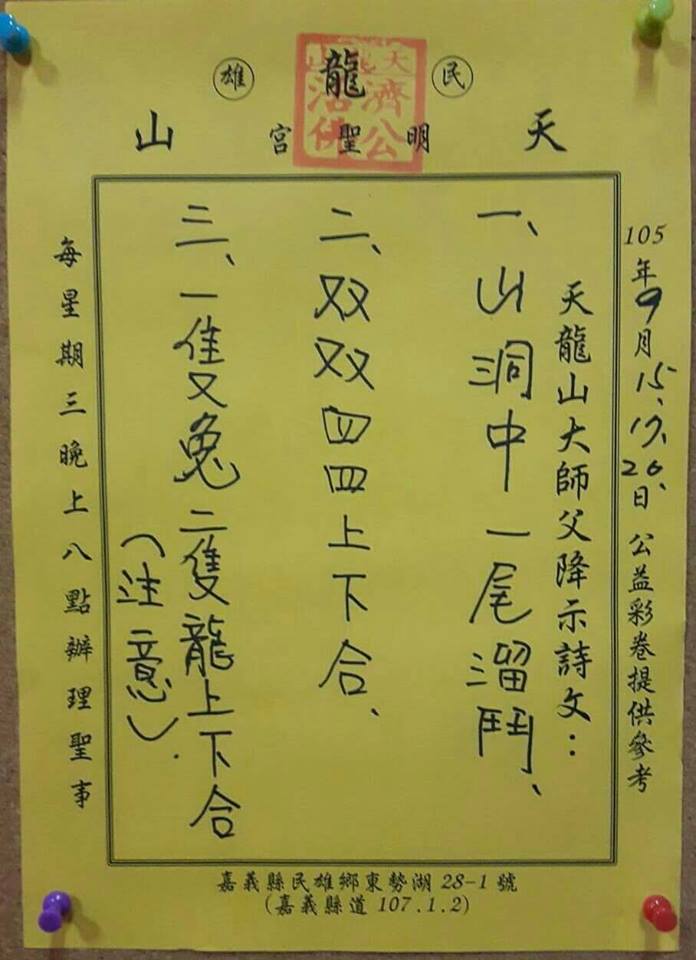 民雄
天龍山
明聖宮
天龍山
濟公
活佛
105年9月15.17.20.日 公益彩卷提供參考
天龍山大師父降示詩文：
一、山洞中一尾溜鬥、
二、双双四四上下合、
三、一隻兔二隻龍上下合
（注意）.
每星期三晚上八點辦理聖事
嘉義縣民雄鄉東勢湖 28-1 號
(嘉義縣道 107.1.2)